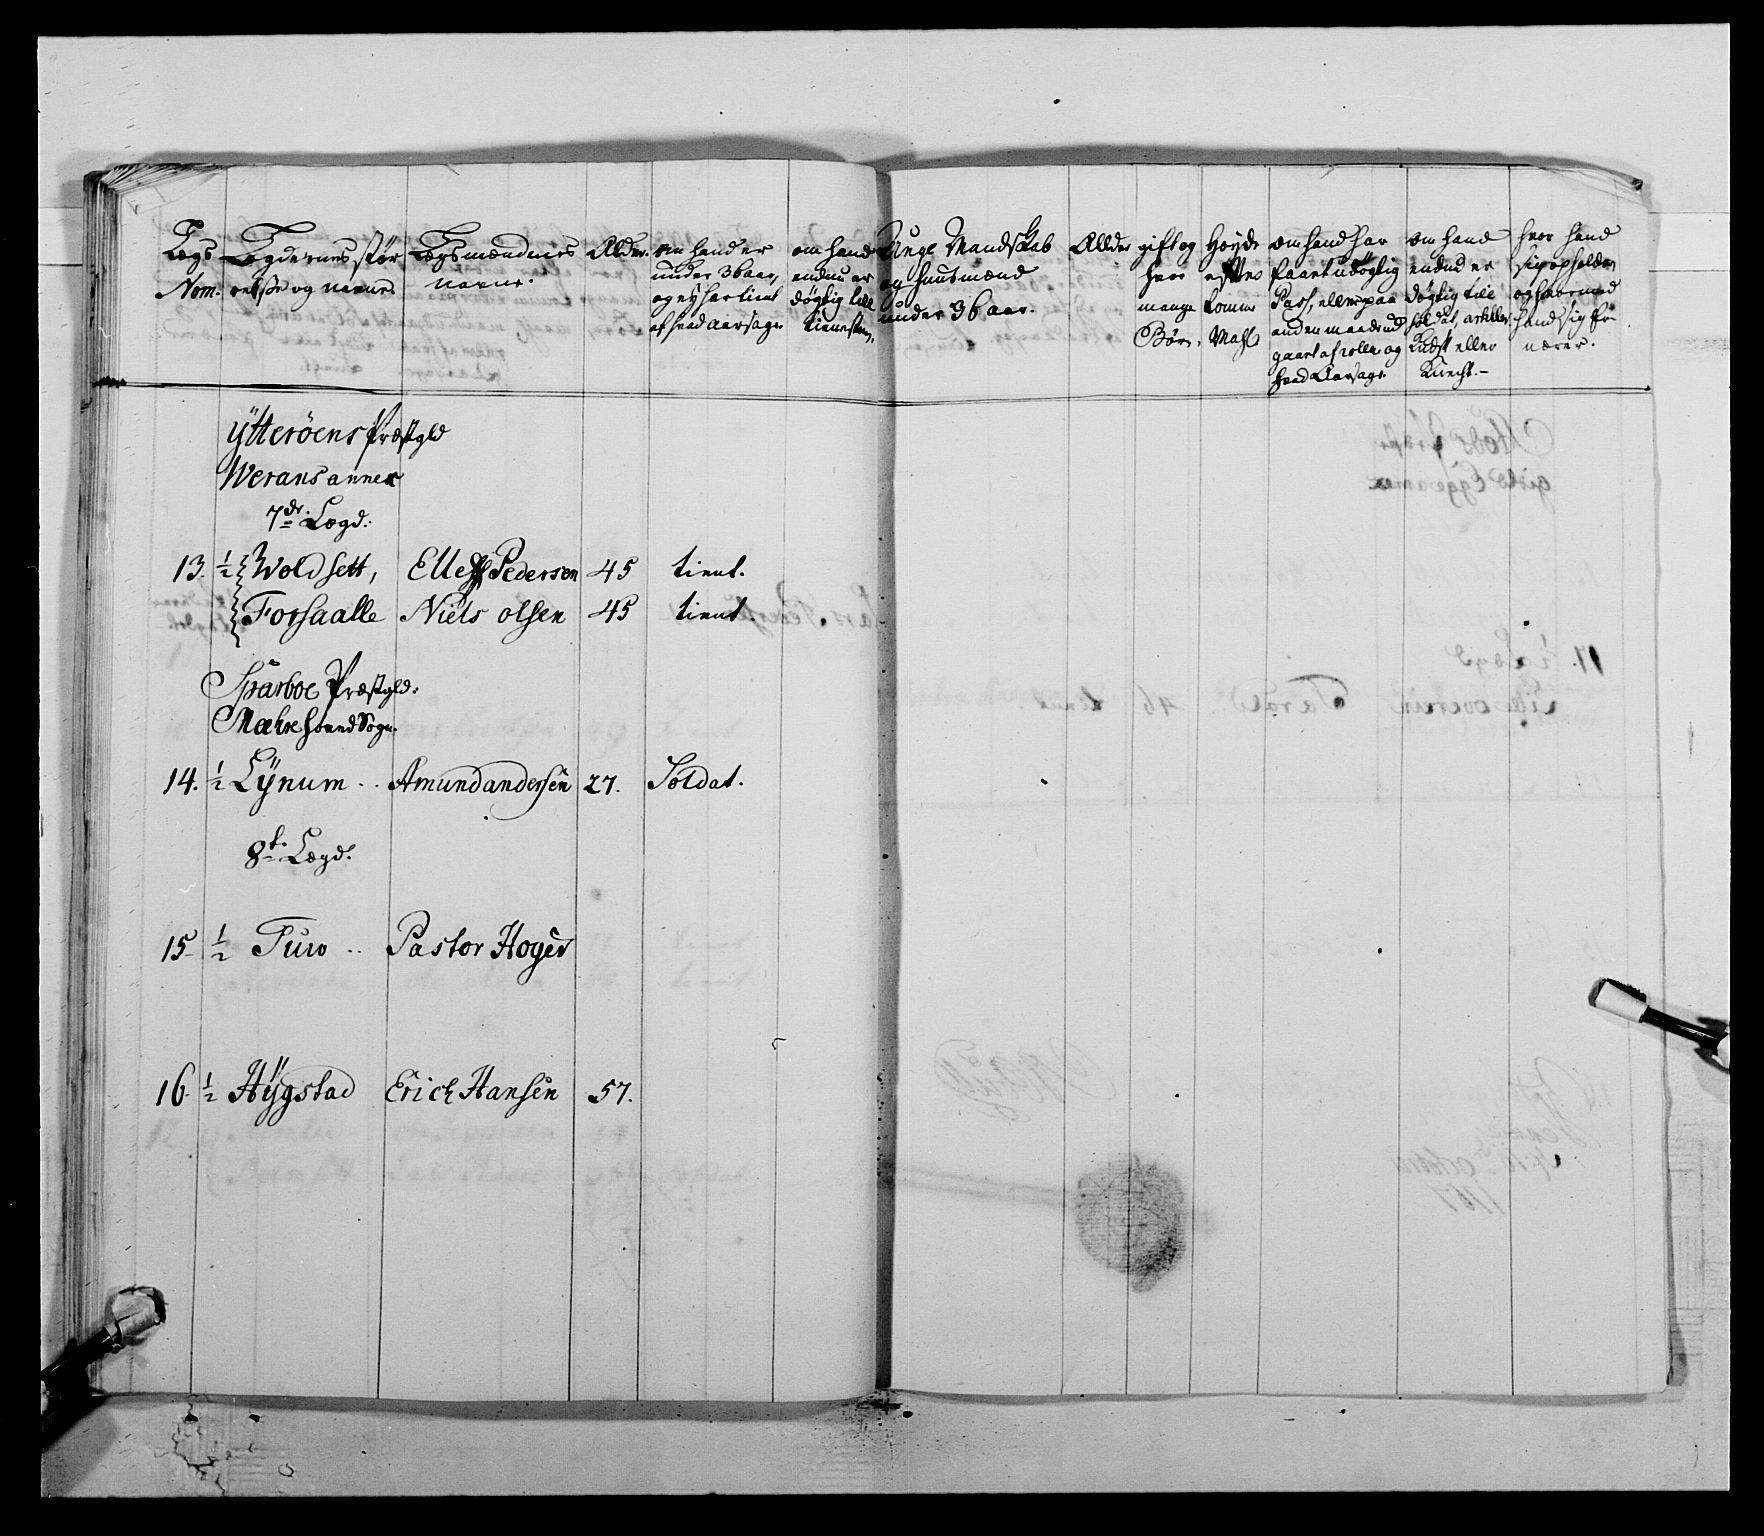 Lægs
Nom.
Legdernes stör
relse og navne
Lægsmændenes
navne.
Alder.
om hand er
under 36 aar,
og ey har tient
af hvad aarsage
om hand
endnu er
døgtig till
tienesten,
Unge Mandskab
og huusmænd
under 36 aar.
Allder
gift og
hvor
mange
Börn,
Höyde
efter
tomme
Mahl
om hand har
faaet udögtig
Pass, eller paa
anden maade ud
gaaet af rollen og
hvad Aarsage
om hand
endnu er
døgtig till
soldat, artiller
Kudsk eller
Knecht.-
hvor hand
sig opholder
og hvormed
hand sig er-
nærer.
Ÿtteröens Præstgld
Werans annex
7de Lægd:
13. 1/2 Woldsett, Elleff Pedersen 45 tient.
Forsaalle Niels olsen 45 tient.
Sparboe Præstgld:
Mæhre hovedSogn.
14. 1/2 Lÿnum .. Amund andersen 27. Soldat.
8te Lægd.
15 1/2 Tuw .. Pastor Hoyer
16. 1/2 Hÿgstad Erich Hansen 57.